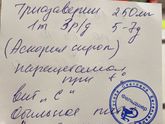 Триазаверин 250мг
1т 3р/д 5-7д
(Аскорил сироп)
парацетамол
при t°
вит "С"
обильное